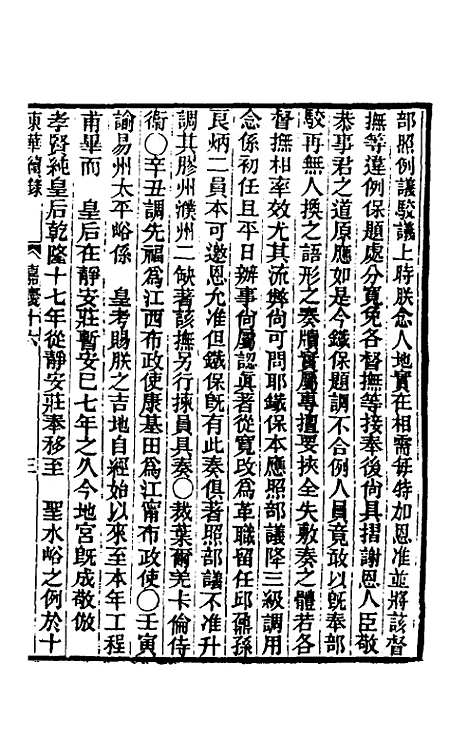 部照例議駁議上時朕念人地實在相需每特加恩准並將該督
撫等違例保題處分寬免各督撫等接奉後尙具摺謝恩人臣敬
恭事君之道原應如是今鐵保題調不合例人員竟敢以旣奉部
駁再無人換之語形之奏牘實屬專擅要挾全失敷奏之體若各
督撫相率效尤其流弊尙可問耶鐵保本應照部議降三級調用
念係初任且平日辦事尙屬認眞著從寬改爲革職留任邱鼐孫
艮炳二員本可邀恩允准但鐵保旣有此奏俱著照部議不准升
調其膠州濮州二缺著該撫另行揀員具奏〇裁葉爾羌卡倫侍
衞〇辛丑調先福爲江西布政使康基田爲江甯布政使〇壬寅
諭易州太平峪係 皇考賜朕之吉地自經始以來至本年工程
甫畢而 皇后在靜安莊暫安已七年之久今地宮旣成敬倣
孝賢純皇后乾隆十七年從靜安莊奉移至 聖水峪之例於十
東華續錄 嘉慶十六 三